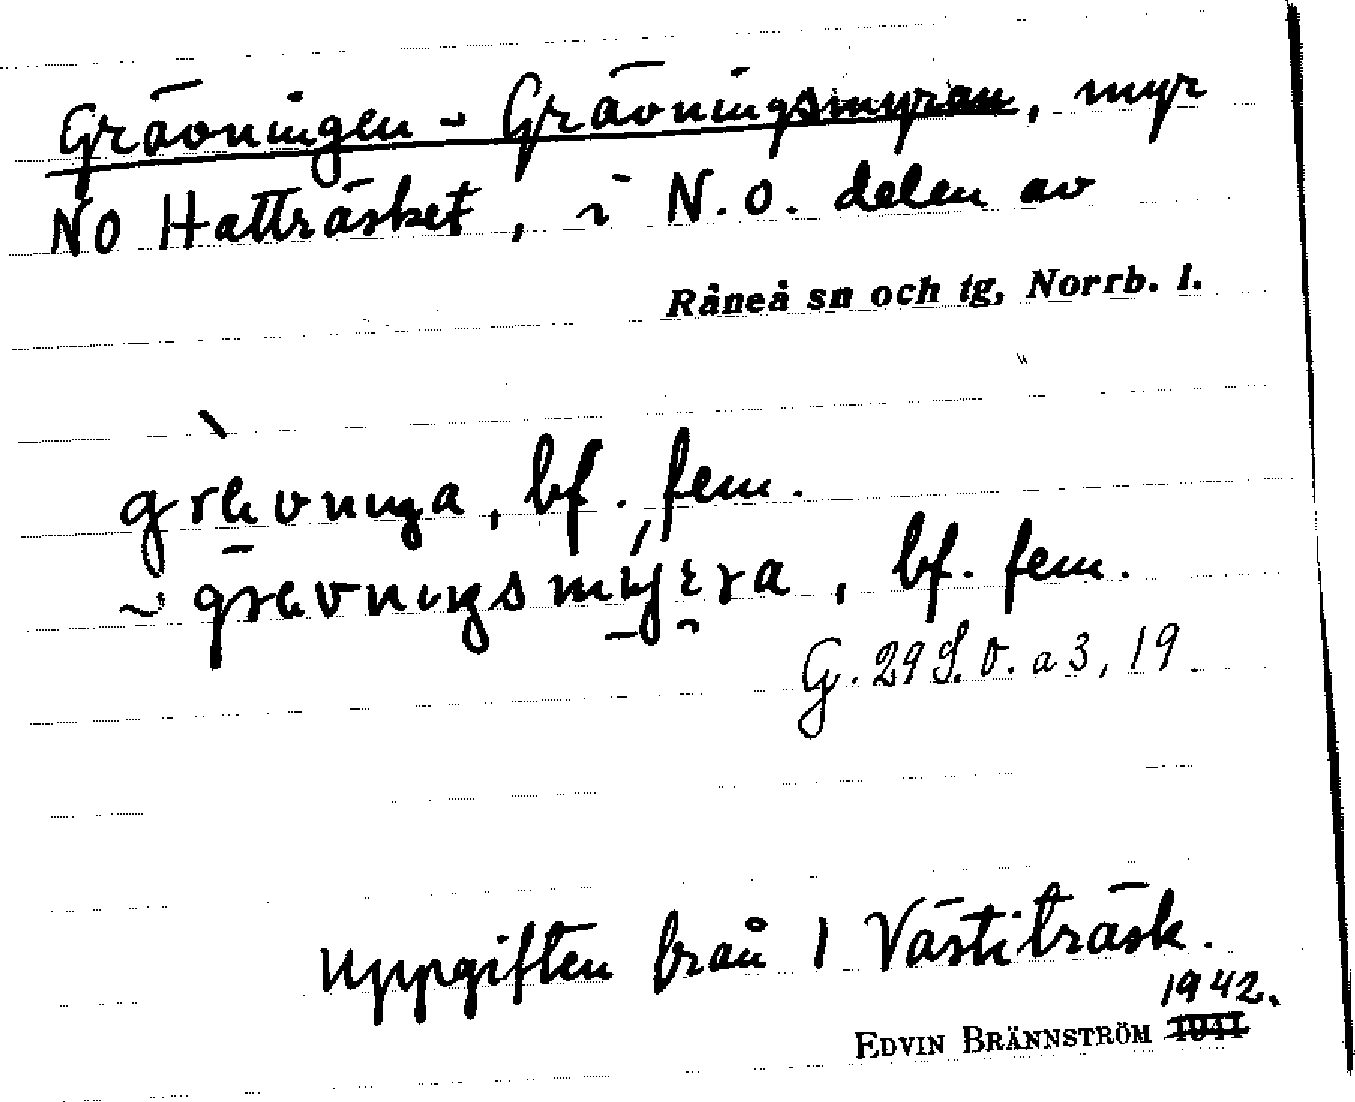 Grävningen ~ Grävningsmyran, myr
NO Hatträsket, i N.O. delen av
Råneå sn och tg, Norrb. l.
grèvnıŋa, bf. fem.
~ grevnıŋsmy̆ra, bf. fem.
G. 29 S.V. a 3, 19
Uppgiften från 1 Västiträsk.
1942.
EDVIN BRÄNNSTRÖM 1941